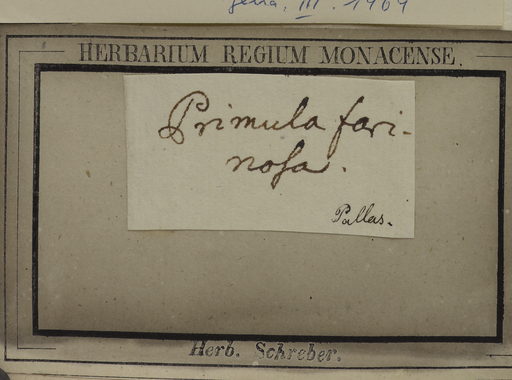 III. 1969
HERBARIUM REGIUM MONACENSE.
Primula fari-
nosa.
Pallas.
Herb. Schreber.